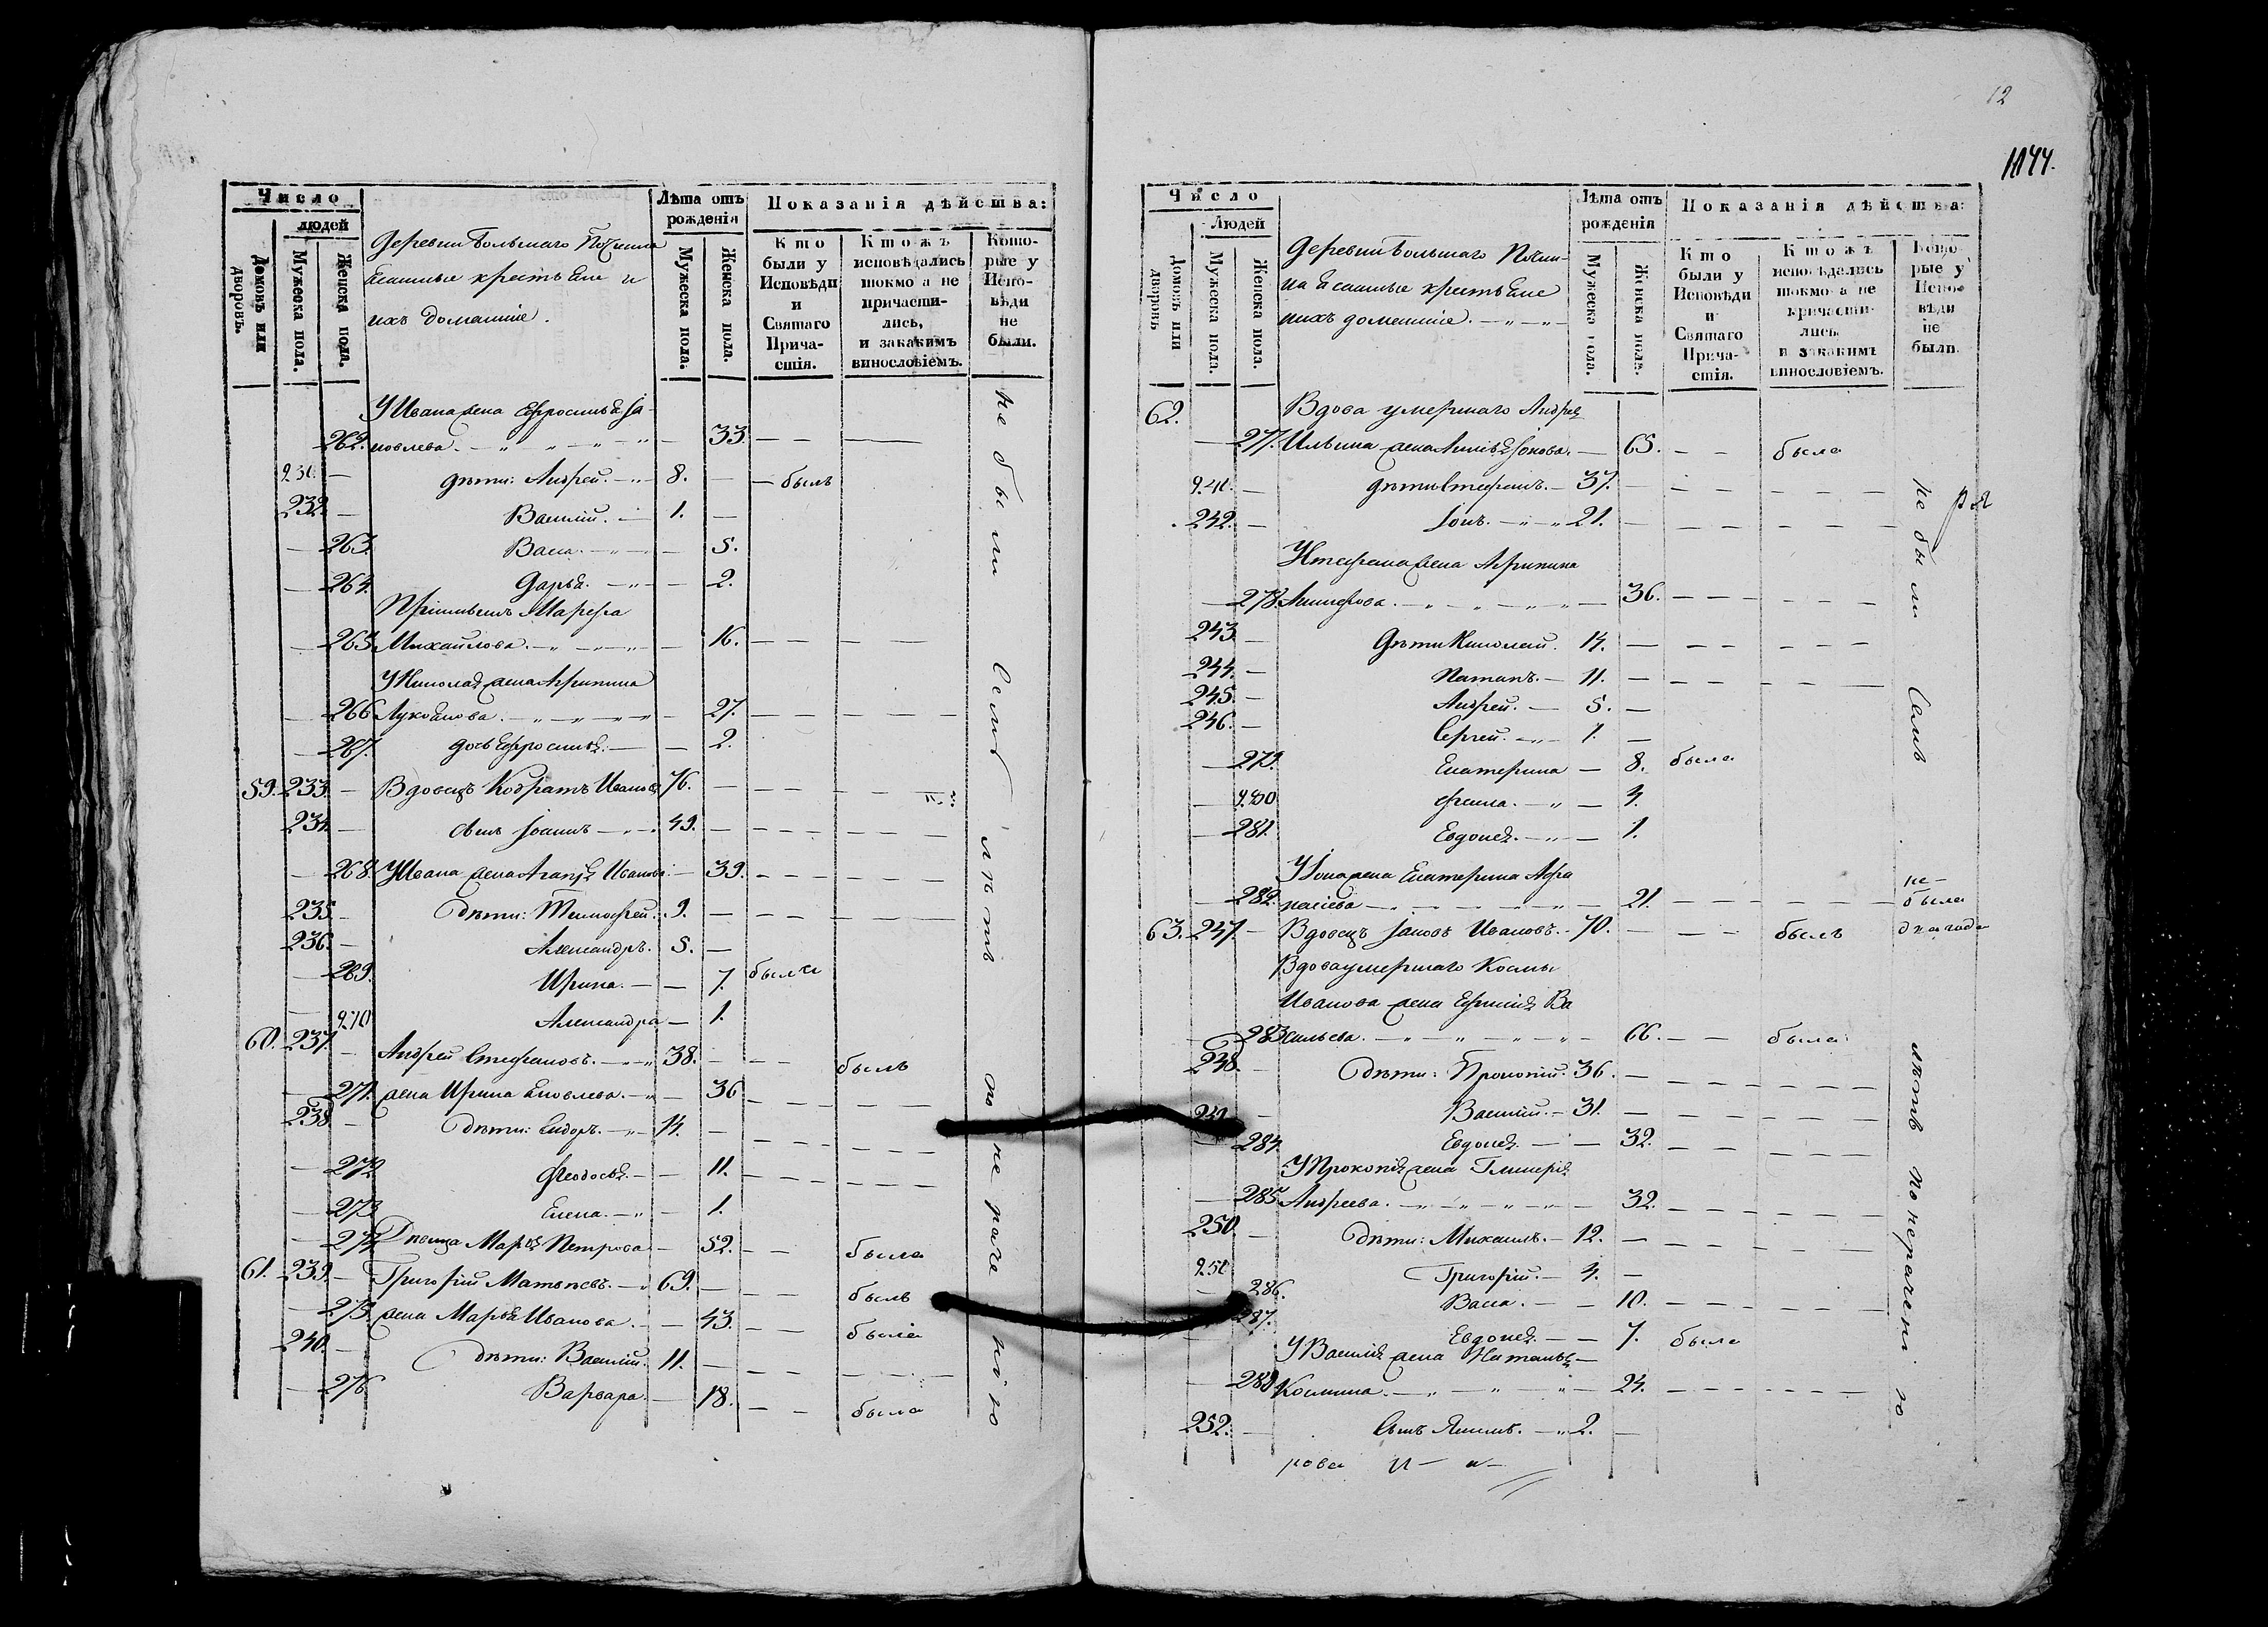 Число
людей
Домовъ или дворовъ.
Мужеска пола.
Женска пола.
Деревни Большаго Починка
Ясашные крестьяне и
ихъ домашніе.
Лѣта отъ рожденія
Мужеска пола.
Женска пола.
Показанія дѣйства:
Кто были у Исповѣди и Святаго Причастія.
Ктожъ исповѣдались токмо а не причастились, и закакимъ винословіемъ.
Которые у Исповѣди не были.
У Ивана жена Ефросинья Яковлева
262. 33.
231. дѣти: Андрей. 8. былъ
232. Василій. 1.
263. Васса. 5.
264. Дарья. 2.
Марфа
265. Михайлова. 16.
У Николая жена Агрипина
266 Лукоянова. 27.
267. дочь Ефросинья. 2.
59. 233. Вдовецъ Кодратъ Ивановъ 76.
234. сынъ Іоаннъ 49.
268. У Ивана жена Агапія Иванова 39.
235. Дѣти: Тимофей. 9.
236. Александръ. 5.
269. Ирина. 7. была
270 Александра 1.
60. 237. Андрей Стефановъ. 38. былъ
271. жена Ирина Яковлева. 36
238. Дѣти: Сидоръ. 14.
272. Феодосья. 11.
273. Елена. 1.
274. Дѣвица Марья Петрова 52. была
61. 239. Григорій Матвѣевъ. 69. былъ
275. жена Марья Иванова. 43. была
240. Дѣти: Василій. 11.
276. Варвара. 18. была
не были семь лѣтъ по нераченію
12
1144.
Число
Людей
Домовъ или дворовъ
Мужеска пола.
Женска пола.
Деревни Большаго Почин-
ка Ясашные крестьяне
ихъ домашніе.
Лѣта отъ рожденія
Мужеско пола.
Женска пола.
Показанія дѣйства:
Кто были у Исповѣди и Святаго Причастія.
Ктожъ исповѣдались токмо а не причастились и закакимъ винословіемъ.
Которые у Исповѣди не были.
62. Вдова умершаго Андрея
277. Ильина жена Анисья Іонова. 65. была
241. дѣти Стефанъ. 37.
242. Іонъ. 21.
У Стефана жена Агрипина
278. 36.
243. Дѣти Николай. 14.
244. Патапъ. 11.
245. Андрей. 5.
246. Сергей. 1.
279. Екатерина 8. была
280 Фекла. 4.
281. Евдокія. 1.
У Іона жена Екатерина Афа
282. насіева 21. не была
63. 247. Вдовецъ Іаковъ Ивановъ. 70. былъ два года
Вдова умершаго Космы
Иванова жена Ефимія Ва
283 сильева. 66. была
248. Дѣти: Прокопій. 36.
249. Василій. 31.
284. Евдокія. 32.
У Прокопія жена Гликерія
285. Андреева. 32.
250. Дѣти: Михаилъ. 12.
251. Григорій. 4.
286. Васса. 10.
287. Евдокія. 7. была
У Василія жена Наталья
288 Космина. 24.
252. Сынъ Якимъ. 2.
не были семь лѣтъ по нерачению